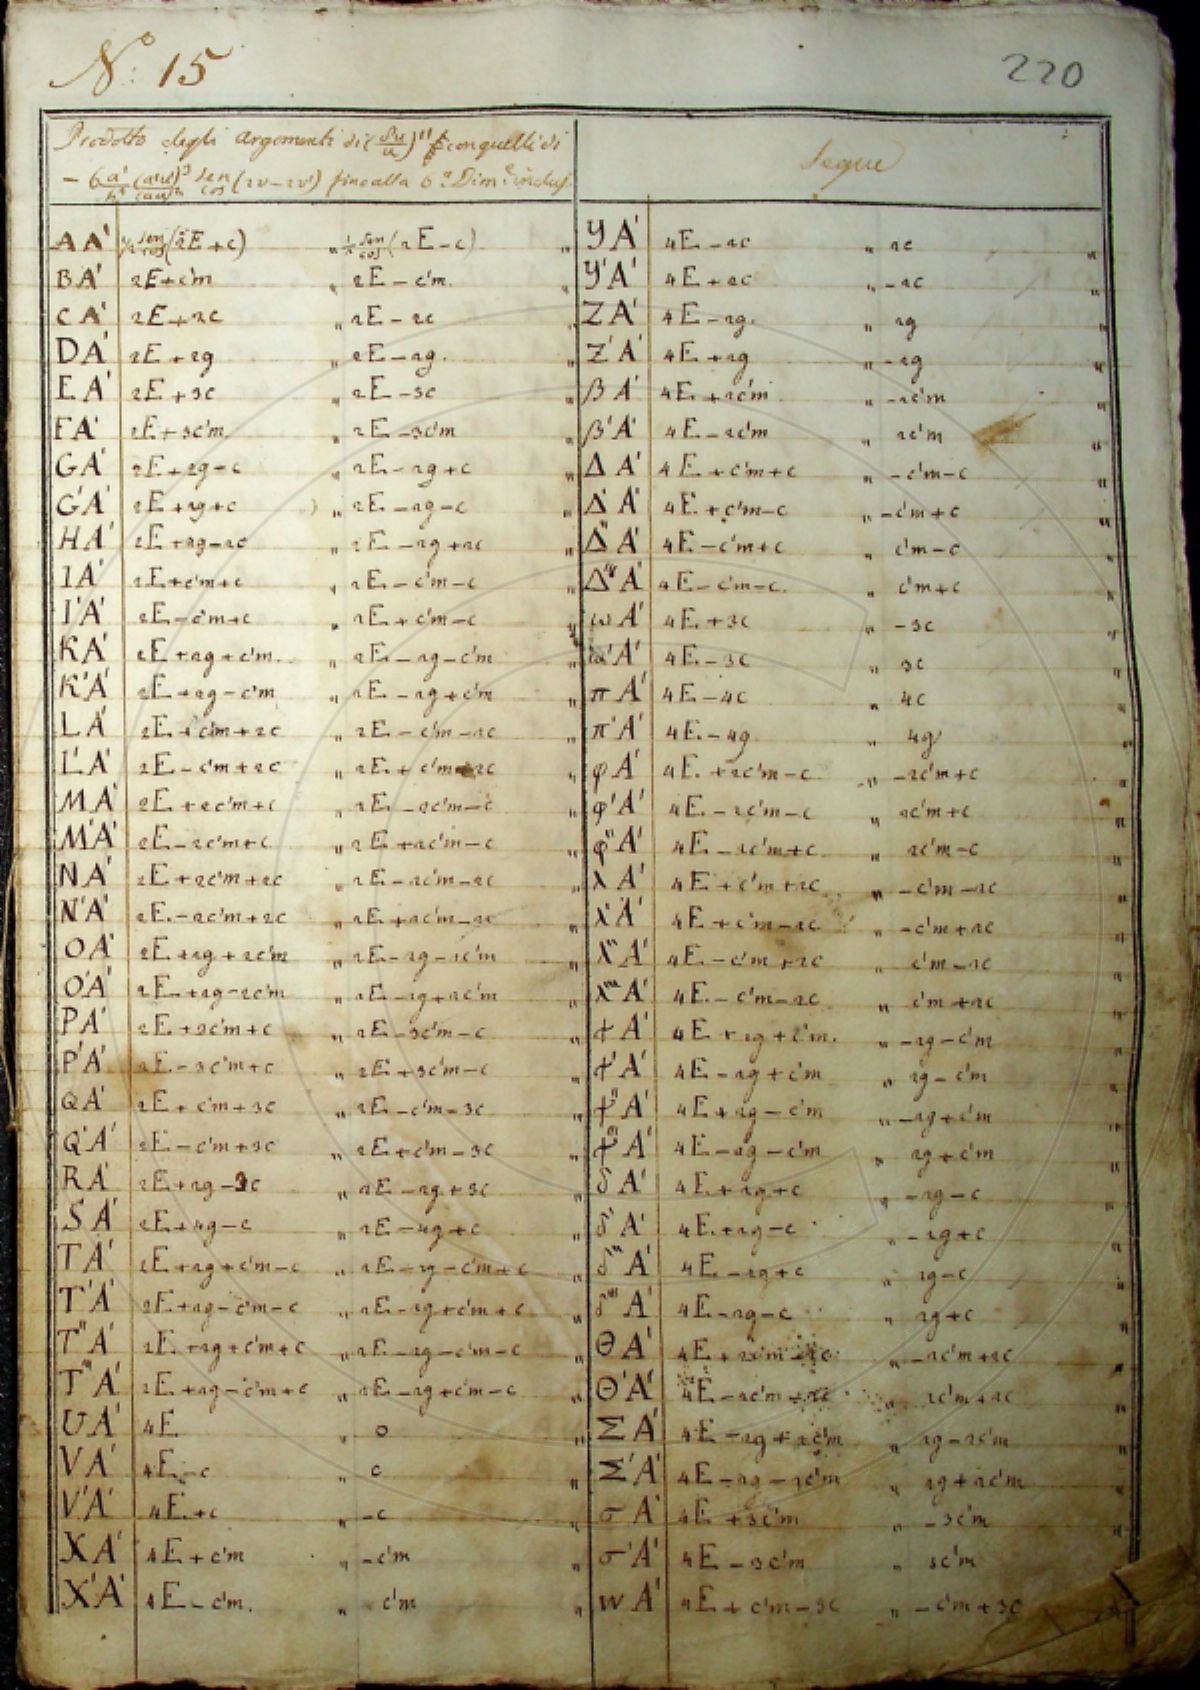 Nº: 15
220
Prodotto degli argomenti di (δu/u)'' con quelli di
fino alla 6ª Dimne inclus.
Segue
AA' ½ sen/cos (2E+c) „ ½ sen/cos (2E-c) „
BA' 2E+c'm „ 2E-c'm „
CA' 2E+2c „ 2E-2c „
DA' 2E+2g „ 2E-2g „
EA' 2E+3c „ 2E-3c „
FA' 2E+3c'm „ 2E-3c'm „
GA' 2E+2g-c „ 2E-2g+c „
G'A' 2E+2g+c „ 2E-2g-c „
HA' 2E+2g-2c „ 2E-2g+2c „
IA' 2E+c'm+c „ 2E-c'm-c „
I'A' 2E-c'm+c „ 2E+c'm-c „
KA' 2E+2g+c'm „ 2E-2g-c'm „
K'A' 2E+2g-c'm „ 2E-2g+c'm „
LA' 2E+c'm+2c „ 2E-c'm-2c „
L'A' 2E-c'm+2c „ 2E+c'm-2c „
MA' 2E+2c'm+c „ 2E-2c'm-c „
M'A' 2E-2c'm+c „ 2E+2c'm-c „
NA' 2E+2c'm+2c „ 2E-2c'm-2c „
N'A' 2E-2c'm+2c „ 2E+2c'm-2c „
OA' 2E+2g+2c'm „ 2E-2g-2c'm „
O'A' 2E+2g-2c'm „ 2E-2g+2c'm „
PA' 2E+3c'm+c „ 2E-3c'm-c „
P'A' 2E-3c'm+c „ 2E+3c'm-c „
QA' 2E+c'm+3c „ 2E-c'm-3c „
Q'A' 2E-c'm+3c „ 2E+c'm-3c „
RA' 2E+2g-3c „ 2E-2g+3c „
SA' 2E+4g-c „ 2E-4g+c „
TA' 2E+2g+c'm-c „ 2E-2g-c'm+c „
T'A' 2E+2g-c'm-c „ 2E-2g+c'm+c „
T''A' 2E+2g+c'm+c „ 2E-2g-c'm-c „
T'''A' 2E+2g-c'm+c „ 2E-2g+c'm-c „
UA' 4E „ 0 „
VA' 4E-c „ c „
V'A' 4E+c „ -c „
XA' 4E+c'm „ -c'm „
X'A' 4E-c'm „ c'm „
YA' 4E-2c „ 2c „
Y'A' 4E+2c „ -2c „
ZA' 4E-2g „ 2g „
Z'A' 4E+2g „ -2g „
βA' 4E+2c'm „ -2c'm „
β'A' 4E-2c'm „ 2c'm „
ΔA' 4E+c'm+c „ -c'm-c „
Δ'A' 4E+c'm-c „ -c'm+c „
Δ''A' 4E-c'm+c „ c'm-c „
Δ'''A' 4E-c'm-c „ c'm+c „
ωA' 4E+3c „ -3c „
ω'A' 4E-3c „ 3c „
πA' 4E-4c „ 4c „
π'A' 4E-4g „ 4g „
φA' 4E+2c'm-c „ -2c'm+c „
φ'A' 4E-2c'm-c „ 2c'm+c „
φ''A' 4E-2c'm+c „ 2c'm-c „
χA' 4E+c'm+2c „ -c'm-2c „
χ'A' 4E+c'm-2c „ -c'm+2c „
χ''A' 4E-c'm+2c „ c'm-2c „
χ'''A' 4E-c'm-2c „ c'm+2c „
ΨA' 4E+2g+c'm „ -2g-c'm „
Ψ'A' 4E-2g+c'm „ 2g-c'm „
Ψ''A' 4E+2g-c'm „ -2g+c'm „
Ψ'''A' 4E-2g-c'm „ 2g+c'm „
δA' 4E+2g+c „ -2g-c „
δ'A' 4E+2g-c „ -2g+c „
δ''A' 4E-2g+c „ 2g-c „
δ'''A' 4E-2g-c „ 2g+c „
ΘA' 4E+2c'm-2c „ -2c'm+2c „
Θ'A' 4E-2c'm-2c „ 2c'm+2c „
ΣA' 4E-2g+2c'm „ 2g-2c'm „
Σ'A' 4E-2g-2c'm „ 2g+2c'm „
σA' 4E+3c'm „ -3c'm „
σ'A' 4E-3c'm „ 3c'm „
wA' 4E+c'm-3c „ -c'm+3c